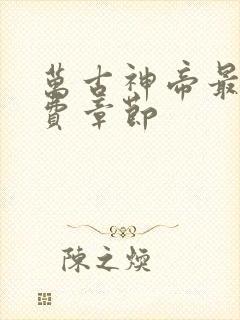 萬古神帝最
費章節
陳之煥